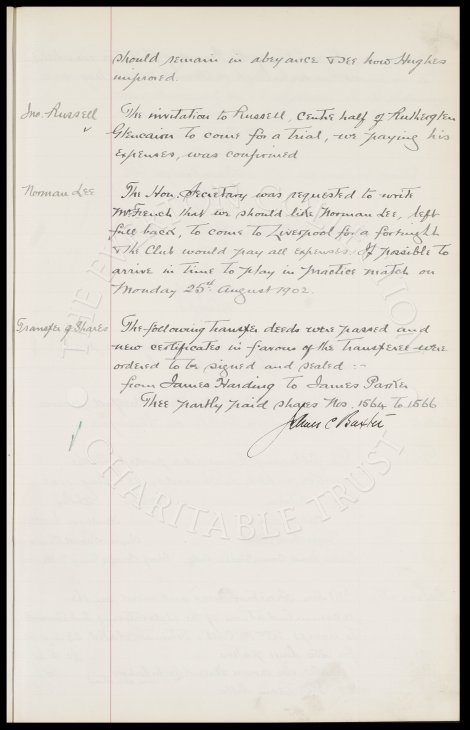 should remain in abeyance & see how Hughes
improved.
Jno. Russell
The invitation to Russell, Centre half of Rutherglen
Glencairn to come for a trial, we paying his
expenses, was confirmed
Norman Lee
The Hon. Secretary was requested to write
Mr French that we should like Norman Lee, left
full back, to come to Liverpool for a fortnight
& the Club would pay all expenses. If possible to
arrive in time to play in practice match on
Monday 25th August 1902.
Transfer of Shares
The following transfer deeds were passed and
new certificates in favour of the transferee were
ordered to be signed and sealed :-
from James Harding to James Parker
Thee partly paid shares Nos. 1564 to 1566
James C Baxter
CHARITABLE TRUST